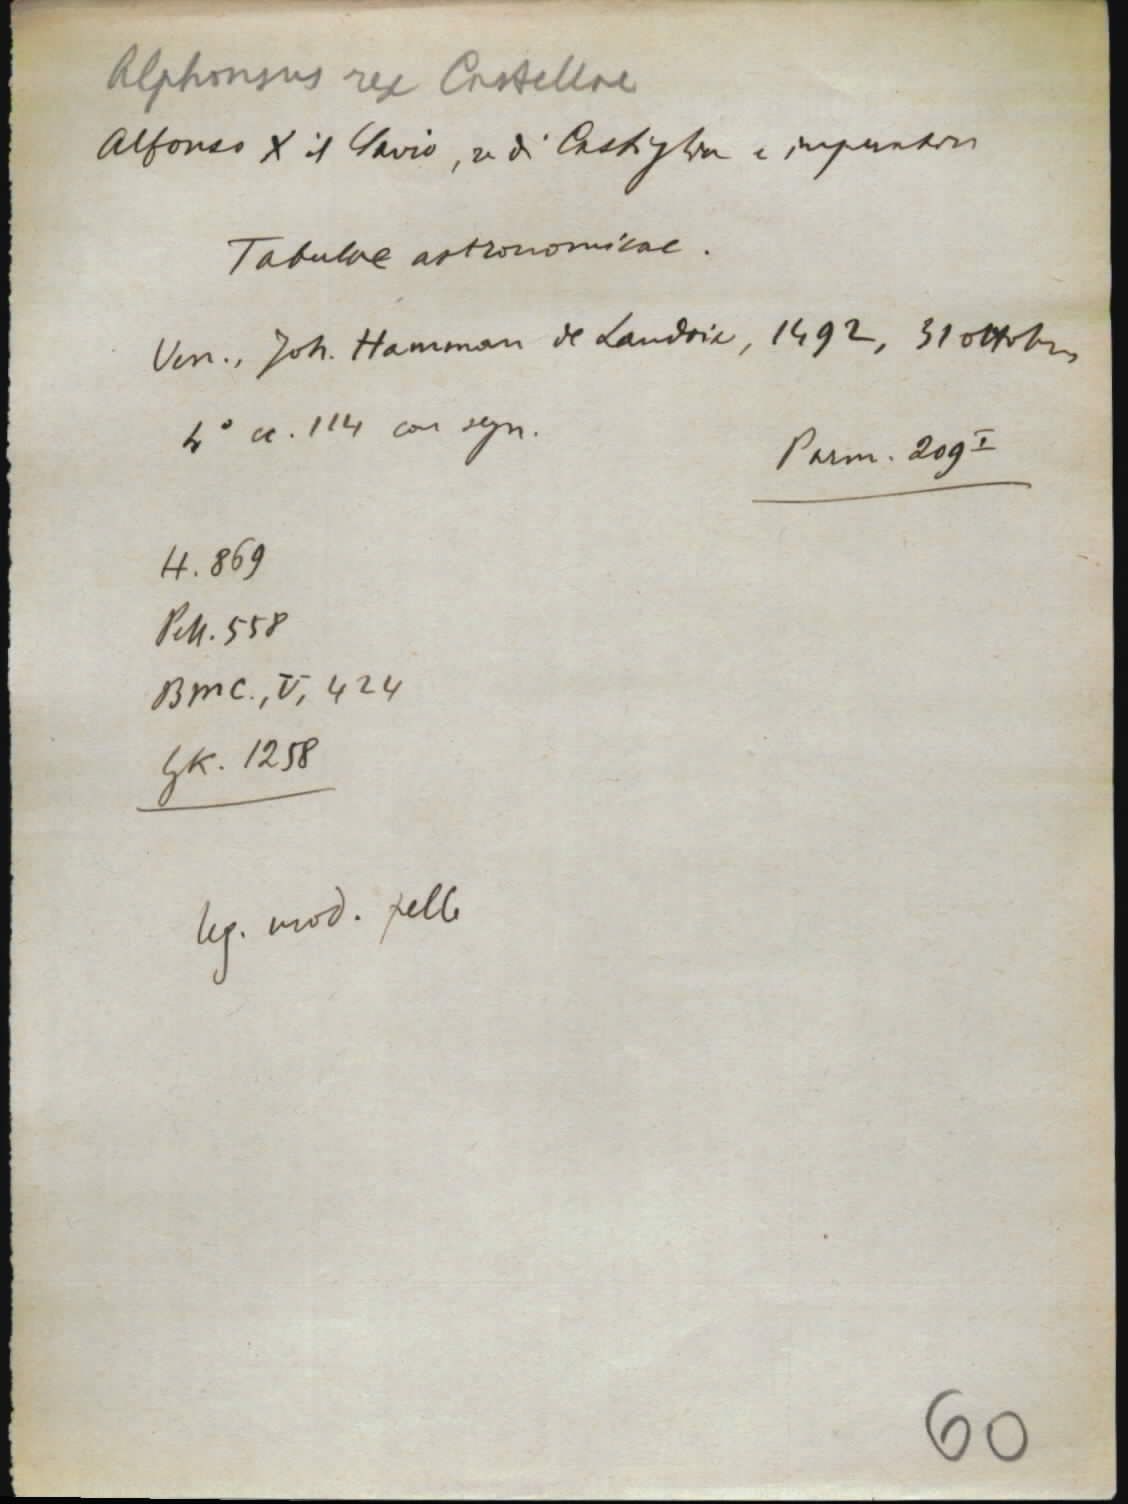 Alphonsus rex Castellae
Alfonso X il Savio, re di Castiglia e imperatore
Tabulae astronomicae.
Ven., Joh. Hamman de Landoia, 1492, 31 ottobre
4° cc. 114 con segn.
Parm. 209 I
H. 869
Pell. 558
BMC., V, 424
GK. 1258
leg. mod. pelle
60